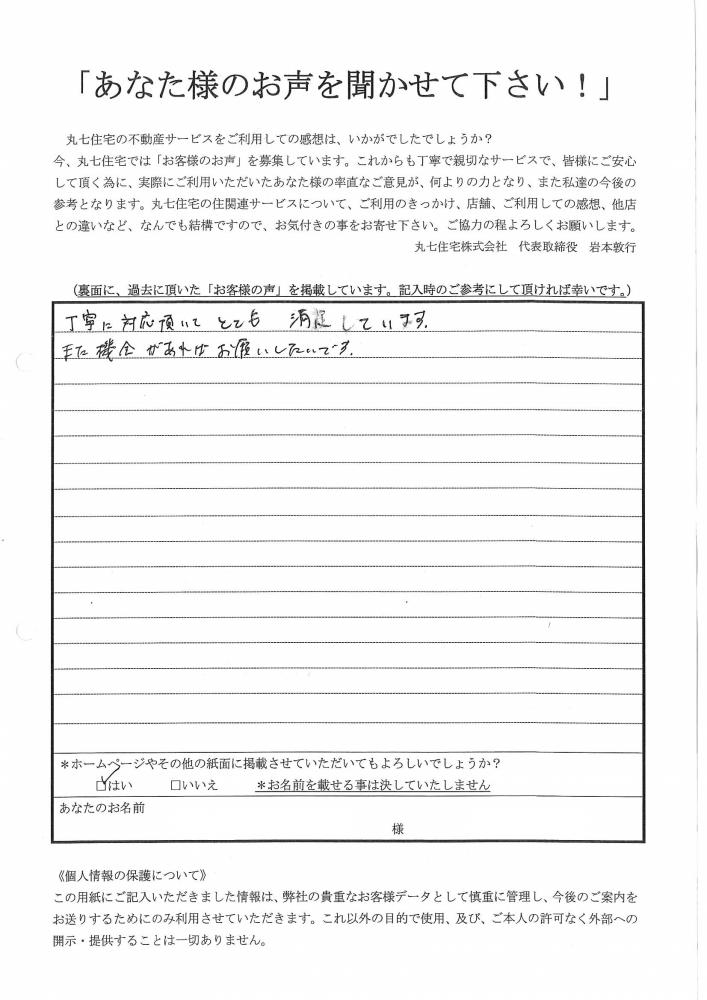 「あなた様のお声を聞かせて下さい！」
丸七住宅の不動産サービスをご利用しての感想は、いかがでしたでしょうか？
今、丸七住宅では「お客様のお声」を募集しています。これからも丁寧で親切なサービスで、皆様にご安心
して頂く為に、実際にご利用いただいたあなた様の率直なご意見が、何よりの力となり、また私達の今後の
参考となります。丸七住宅の住関連サービスについて、ご利用のきっかけ、店舗、ご利用しての感想、他店
との違いなど、なんでも結構ですので、お気付きの事をお寄せ下さい。ご協力の程よろしくお願いします。
丸七住宅株式会社　代表取締役　岩本敦行
（裏面に、過去に頂いた「お客様の声」を掲載しています。記入時のご参考にして頂ければ幸いです。）
丁寧に対応頂いてとても 満足しています。
また機会があればお願いしたいです。
＊ホームページやその他の紙面に掲載させていただいてもよろしいでしょうか？
☑はい　□いいえ　＊お名前を載せる事は決していたしません
あなたのお名前
様
《個人情報の保護について》
この用紙にご記入いただきました情報は、弊社の貴重なお客様データとして慎重に管理し、今後のご案内を
お送りするためにのみ利用させていただきます。これ以外の目的で使用、及び、ご本人の許可なく外部への
開示・提供することは一切ありません。